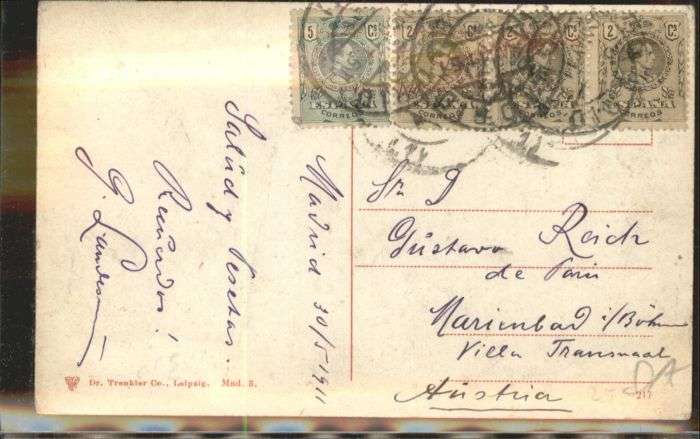 5 Cs
ESPAÑA
CORREOS
2 Cs
ESPAÑA
CORREOS
2 Cs
ESPAÑA
CORREOS
2 Cs
ESPAÑA
CORREOS
Madrid 30/5 1911
Salúd y Pesetas.
Recuerdos!
G.
Sr D
Gűstavo Reich
de
Marienbad i/Böhm
Villa Transvaal
Aűstria
Dr. Trenkler Co., Leipzig. Mad. 3.
217